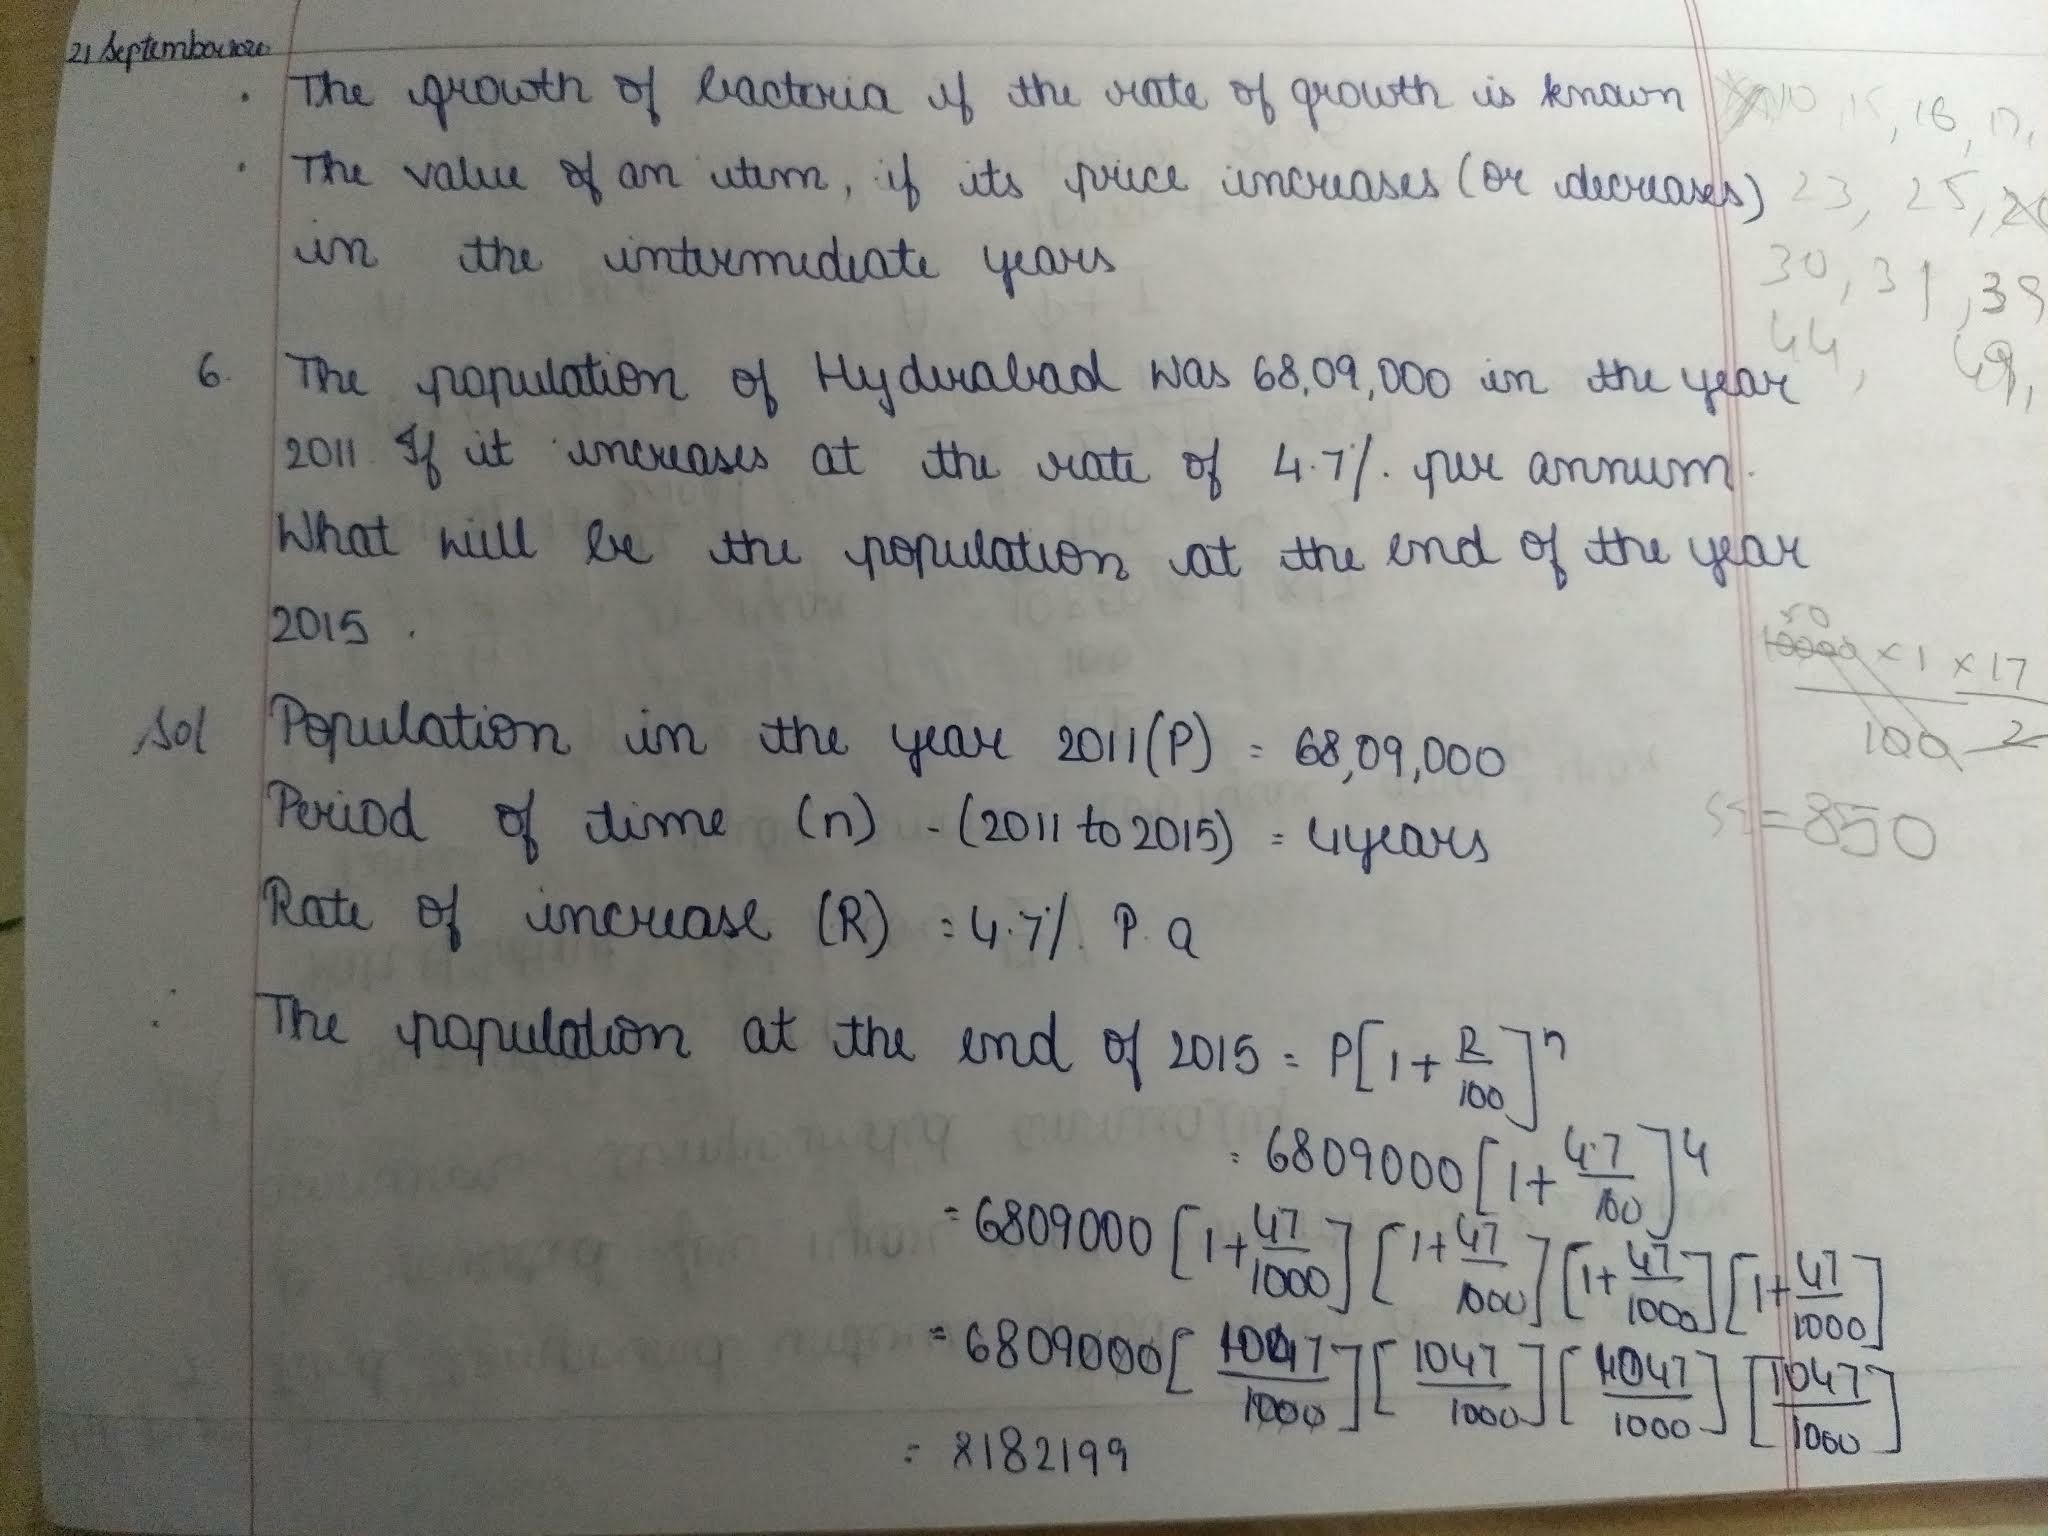 21 September 2020
· The growth of bacteria if the rate of growth is known
· The value of an item, if its price increases (or decreases)
in the intermediate years
10, 15, 16, 17,
23, 25,
30, 31, 39
44, 49,
6. The population of Hyderabad was 68,09,000 in the year
2011. If it increases at the rate of 4.7%. per annum.
What will be the population at the end of the year
2015.
50
10000 × 1 × 17
100 2
= 850
Sol Population in the year 2011 (P) = 68,09,000
Period of time (n) - (2011 to 2015) = 4years
Rate of increase (R) = 4.7%. P.a
The population at the end of 2015 = P[1+ R/100]n
= 6809000 [1+ 4.7/100]4
= 6809000 [1+ 47/1000] [1+ 47/1000] [1+ 47/1000] [1+ 47/1000]
= 6809000 [1047/1000] [1047/1000] [1047/1000] [1047/1000]
= 8182199